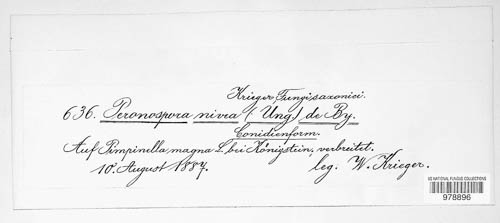 Krieger, Fungi saxonici.
636. Peronospora nivea (Ung) de By.
Conidienform.
Auf Pimpinella magna L. bei Königstein, verbreitet.
10. August 1887. leg. W. Krieger.
US NATIONAL FUNGUS COLLECTIONS
978896